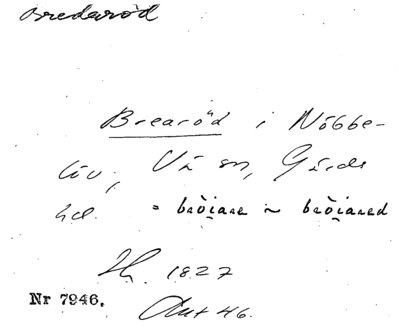 Bredaröd
Brearöd i Nöbbe-
löv, Vä sn, Gärds
hd. = brèjare ~ brèjared
1827
Nr 7946. Ant 46.